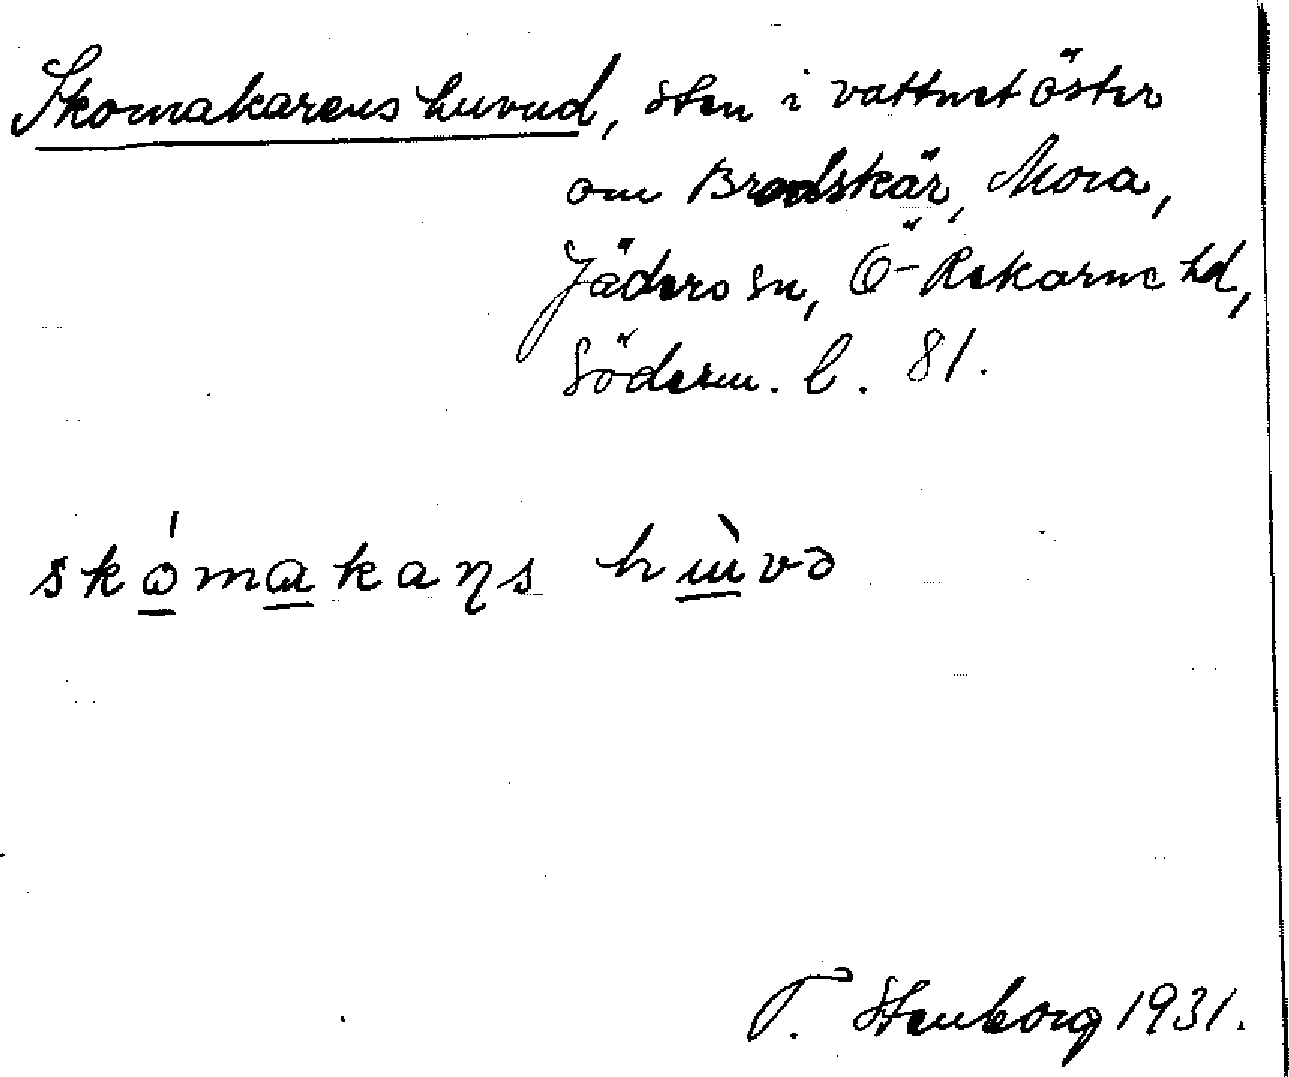 Skomakarens huvud, sten i vattnet öster
om Brodskär, Mora,
Jäders sn, Ö-Rekarne hd,
Söderm. l. 81.
skómakaŋs hùvə
T. Stenborg 1931.